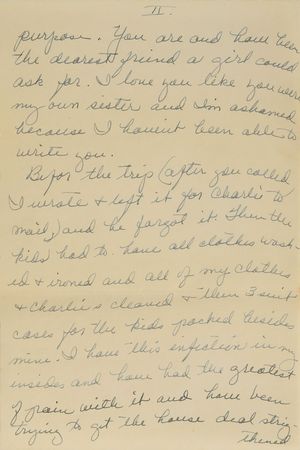 II.
purpose. You are and have been
the dearest friend a girl could
ask for. I love you like you were
my own sister and I'm ashamed
because I haven't been able to
write you.
Befor the trip (after you called
I wrote & left it for Charlie to
mail,) and he forgot it. Then the
kids had to have all clothes wash-
ed & ironed and all of my clothes
& Charlie's cleaned & then 3 suit
cases for the kids packed besides
mine. I have this infection in my
insides and have had the greatest
of pain with it and have been
trying to get the house deal straig-
thened